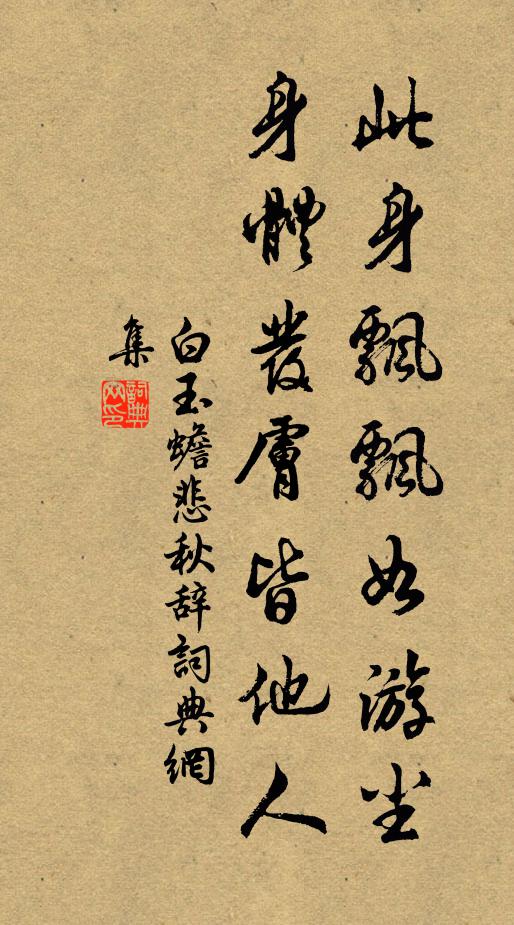 此身飄飄如游尘
身體發膚皆他人
白玉蟾悲秋辞詞典網
集
詞典网印